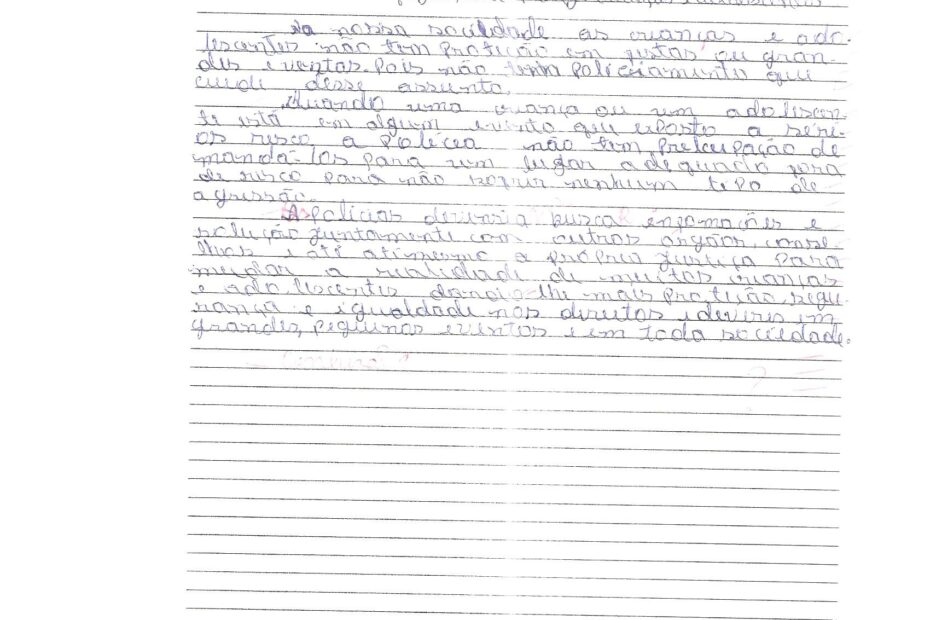 Na nossa sociedade as crianças e ado-
lescentes não tem proteção em festas ou gran-
des eventos. Pois não tenha policiamento que
cuide desse assunto.
Quando uma criança ou um adolescen-
te está em algum evento que exposto a seri-
os risco a polícia não tem preocupação de
manda-los para um lugar adequado fora
de risco para não sofrer nenhum tipo de
agressão.
As policias deveria busca enformações e
solução juntamente com outros orgãos, conse-
lhos e até atimesmo a própria justiça para
mudar a realidade de muitas crianças
e adolescentes dando-lhe mais proteção, segu-
rança e igualdade nos direitos e deveres em
grandes, pequenos eventos e em toda sociedade.